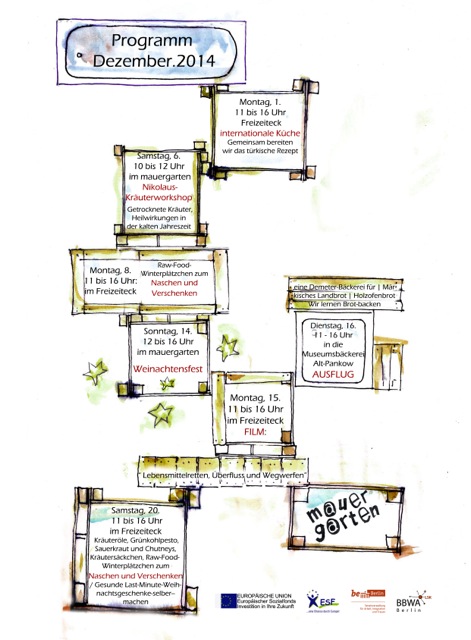 Programm
Dezember.2014
Montag, 1.
11 bis 16 Uhr
Freizeiteck
internationale Küche
Gemeinsam bereiten
wir das türkische Rezept
Samstag, 6.
10 bis 12 Uhr
im mauergarten
Nikolaus-
Kräuterworkshop
Getrocknete Kräuter,
Heilwirkungen in
der kalten Jahreszeit
Montag, 8.
11 bis 16 Uhr:
im Freizeiteck
Raw-Food-
Winterplätzchen zum
Naschen und
Verschenken
eine Demeter-Bäckerei für | Mär-
kisches Landbrot | Holzofenbrot
Wir lernen Brot-backen
Dienstag, 16.
11 - 16 Uhr
in die
Museumsbäckerei
Alt-Pankow
AUSFLUG
Sonntag, 14.
12 bis 16 Uhr
im mauergarten
Weinachtensfest
Montag, 15.
11 bis 16 Uhr
im Freizeiteck
FILM:
" Lebensmittelretten, Überfluss und Wegwerfen"
Samstag, 20.
11 bis 16 Uhr
im Freizeiteck
Kräuteröle, Grünkohlpesto,
Sauerkraut und Chutneys,
Kräutersäckchen, Raw-Food-
Winterplätzchen zum
Naschen und Verschenken
/ Gesunde Last-Minute-Weih-
nachtsgeschenke-selber--
machen
mauer
garten
EUROPÄISCHE UNION
Europäischer Sozialfonds
Investition in Ihre Zukunft
ESF
Berlin
BBWA
Berlin